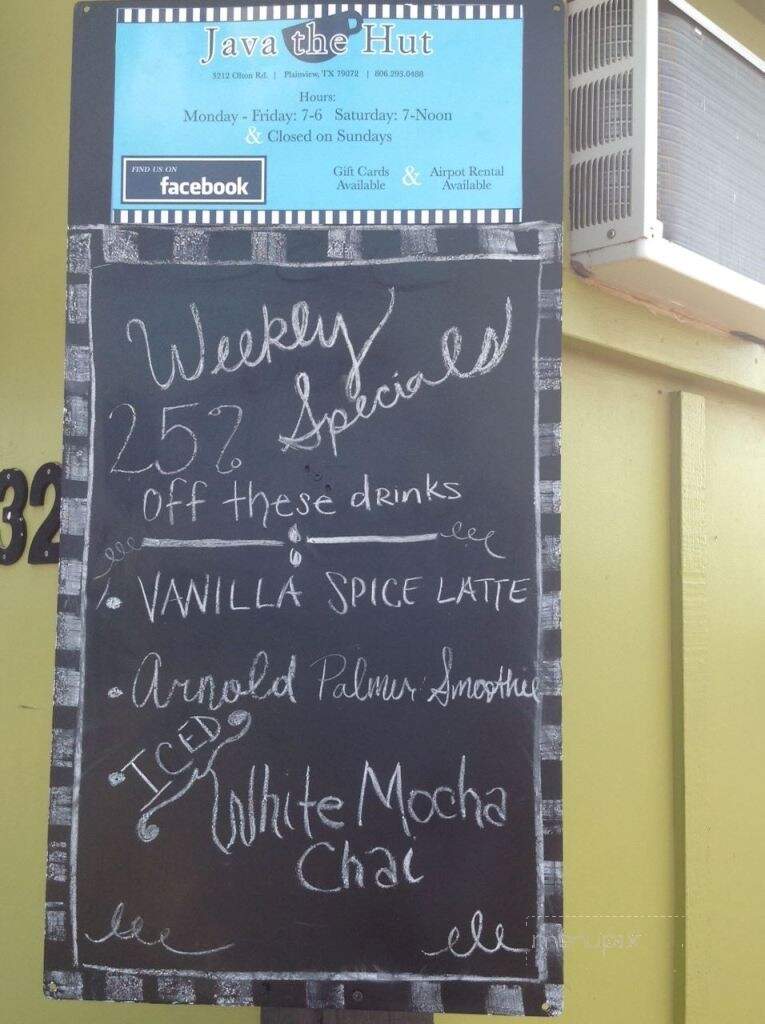 Java the Hut
3212 Olton Rd. | Plainview, TX 79072 | 806.293.0488
Hours:
Monday - Friday: 7-6 Saturday: 7-Noon
& Closed on Sundays
FIND US ON
facebook
Gift Cards
Available
&
Airpot Rental
Available
Weekly
Specials
25%
off these drinks
32
• VANILLA SPICE LATTE
• Arnold Palmer Smoothie
• ICED
White Mocha
Chai
menupix